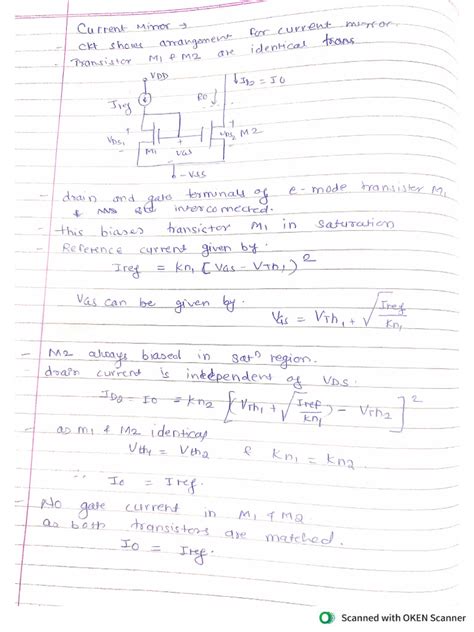 Current Mirror →
- ckt shows arrangement for current mirror.
- Transistor M1 & M2 are identical trans
VDD
↓ID2 = IO
Iref
RO
+
VDS1
-
M1
VGS
+
VDS2
-
M2
- VSS
- drain and gate terminals of e-mode transistor M1
interconnected.
- this biases transistor M1 in saturation
- Reference current given by.
Iref = Kn1 [VGS - VTh1)²
VGS can be given by.
VGS = VTh1 + √Iref/Kn1
- M2 always biased in satⁿ region.
- drain current is independent of VDS.
ID2 = IO = Kn2 [(VTh1 + √Iref/Kn1) - VTh2]²
- as M1 & M2 identical
VTh1 = VTh2 & Kn1 = Kn2
∴ IO = Iref.
- No gate current in M1 & M2
as both transistors are matched.
IO = Iref.
Scanned with OKEN Scanner